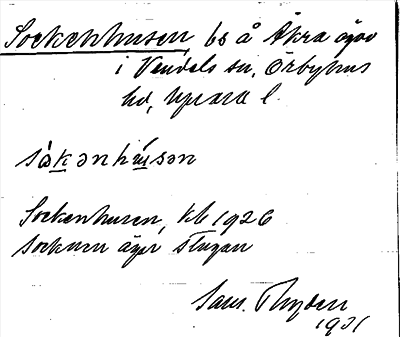 Sockenhusen, bs å Åkra ägor
i Vendels sn, Örbyhus
hd, Uppsala l.
såkenhúsen
Sockenhusen, kb 1926
Socknen äger stugan
Sam. Thydén
1931